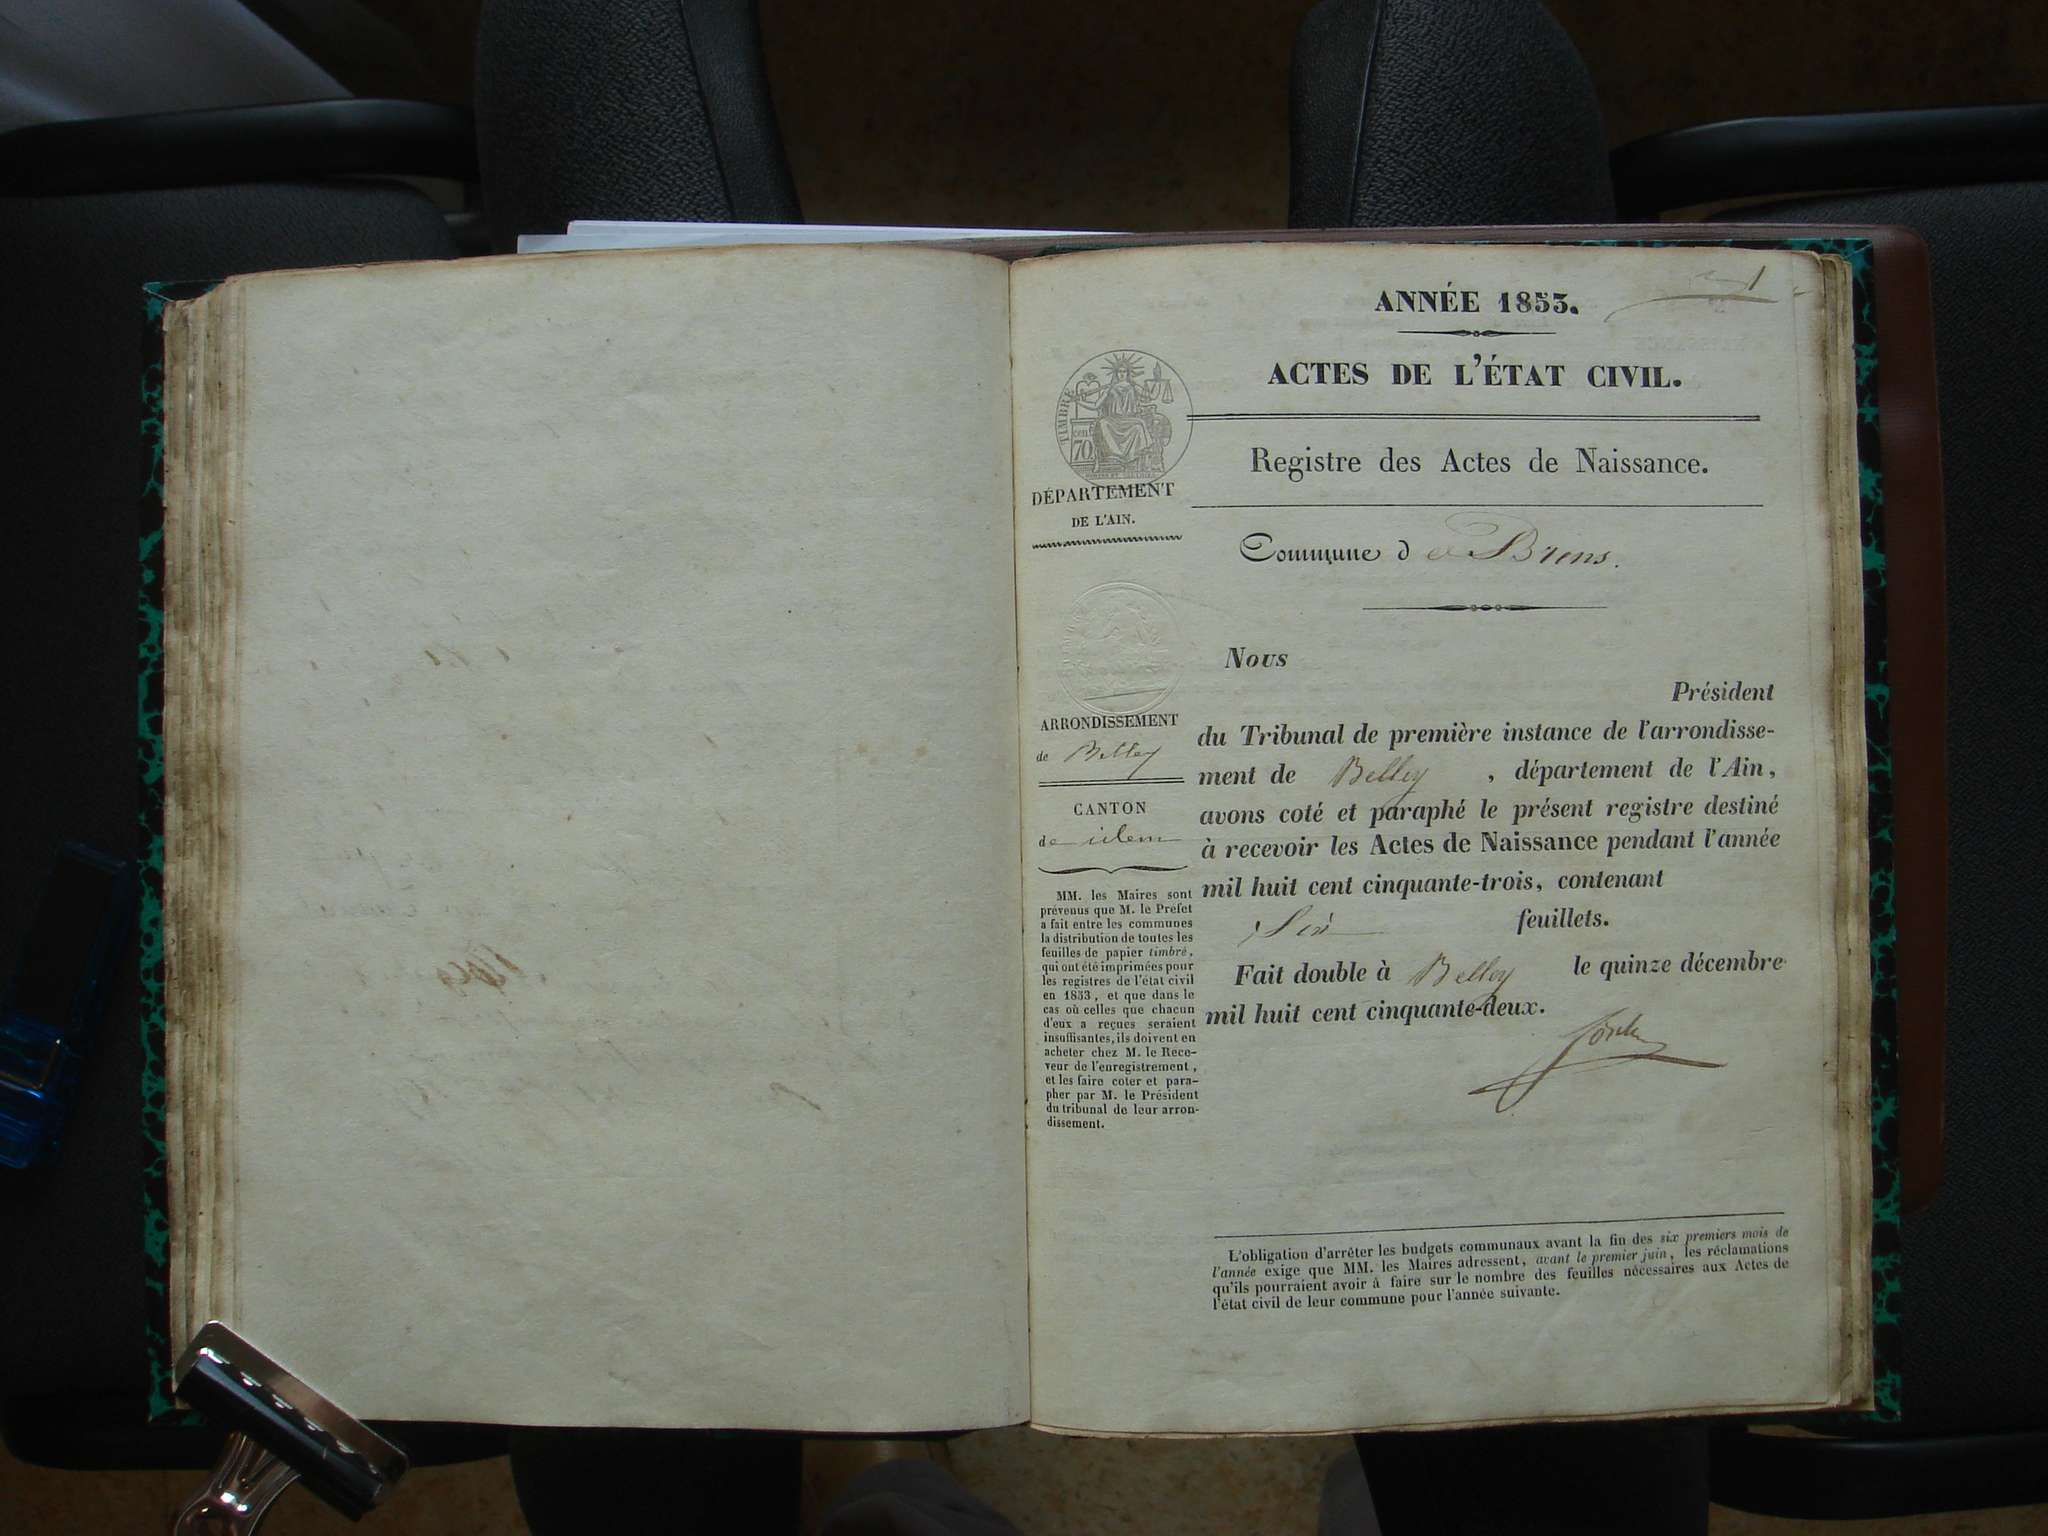 1
ANNÉE 1853.
ACTES DE L'ÉTAT CIVIL.
TIMBRE
cent
70
Registre des Actes de Naissance.
DÉPARTEMENT
DE L'AIN.
Commune de Brens.
Nous
Président
du Tribunal de première instance de l'arrondisse-
ment de Belley, département de l'Ain,
avons coté et paraphé le présent registre destiné
à recevoir les Actes de Naissance pendant l'année
mil huit cent cinquante-trois, contenant
Six feuillets.
Fait double à Belley le quinze décembre
mil huit cent cinquante-deux.
ARRONDISSEMENT
de Belley
CANTON
de idem
MM. les Maires sont
prévenus que M. le Préfet
a fait entre les communes
la distribution de toutes les
feuilles de papier timbré,
qui ont été imprimées pour
les registres de l'état civil
en 1853, et que dans le
cas où celles que chacun
d'eux a reçues seraient
insuffisantes, ils doivent en
acheter chez M. le Rece-
veur de l'enregistrement,
et les faire coter et para-
pher par M. le Président
du tribunal de leur arron-
dissement.
L'obligation d'arrêter les budgets communaux avant la fin des six premiers mois de
l'année exige que MM. les Maires adressent, avant le premier juin, les réclamations
qu'ils pourraient avoir à faire sur le nombre des feuilles nécessaires aux Actes de
l'état civil de leur commune pour l'année suivante.